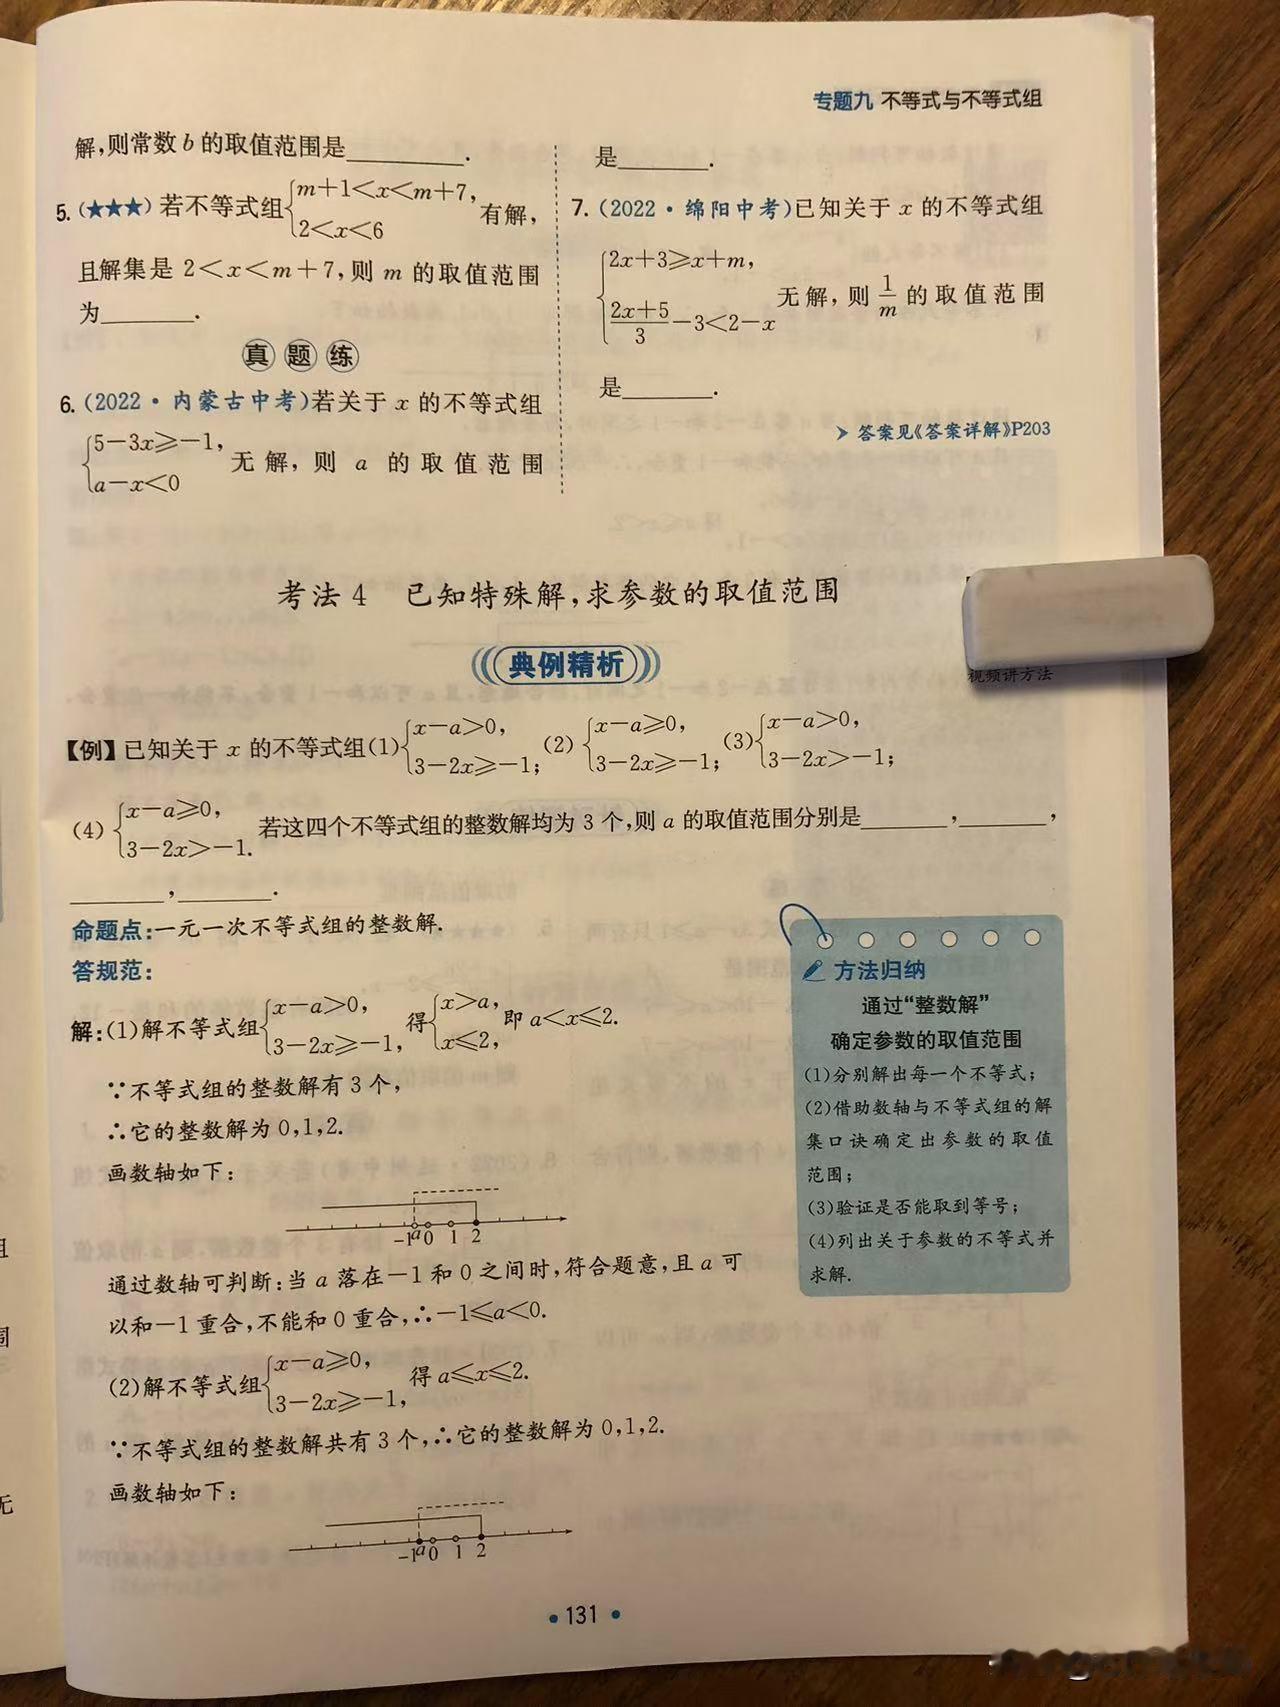 专题九 不等式与不等式组
解,则常数b的取值范围是________.
5.(★★★)若不等式组{m+1<x<m+7, 2<x<6 有解,
且解集是 2<x<m+7,则 m 的取值范围
为________.
真题练
6.(2022·内蒙古中考)若关于 x 的不等式组
{5-3x⩾-1, a-x<0 无解,则 a 的取值范围
是________.
7.(2022·绵阳中考)已知关于 x 的不等式组
{2x+3⩾x+m, (2x+5)/3-3<2-x 无解,则 1/m 的取值范围
是________.
➤ 答案见《答案详解》P203
考法4 已知特殊解,求参数的取值范围
典例精析
视频讲方法
【例】已知关于 x 的不等式组(1){x-a>0, 3-2x⩾-1; (2){x-a⩾0, 3-2x⩾-1; (3){x-a>0, 3-2x>-1;
(4){x-a⩾0, 3-2x>-1. 若这四个不等式组的整数解均为 3 个,则 a 的取值范围分别是________,________,
________,________.
命题点:一元一次不等式组的整数解.
答规范:
解:(1)解不等式组{x-a>0, 3-2x⩾-1, 得{x>a, x⩽2, 即 a<x⩽2.
∵不等式组的整数解有 3 个,
∴它的整数解为 0,1,2.
画数轴如下:
-1 a 0 1 2
通过数轴可判断:当 a 落在-1 和 0 之间时,符合题意,且 a 可
以和-1 重合,不能和 0 重合,∴-1⩽a<0.
(2)解不等式组{x-a⩾0, 3-2x⩾-1, 得 a⩽x⩽2.
∵不等式组的整数解共有 3 个,∴它的整数解为 0,1,2.
画数轴如下:
-1 a 0 1 2
方法归纳
通过“整数解”
确定参数的取值范围
(1)分别解出每一个不等式;
(2)借助数轴与不等式组的解
集口诀确定出参数的取值
范围;
(3)验证是否能取到等号;
(4)列出关于参数的不等式并
求解.
·131·